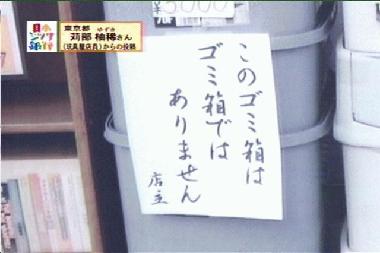 東京都
ゆずき
苅部 柚稀さん
(玩具屋店員)からの投稿
5000
このゴミ箱は
ゴミ箱では
ありません
店主